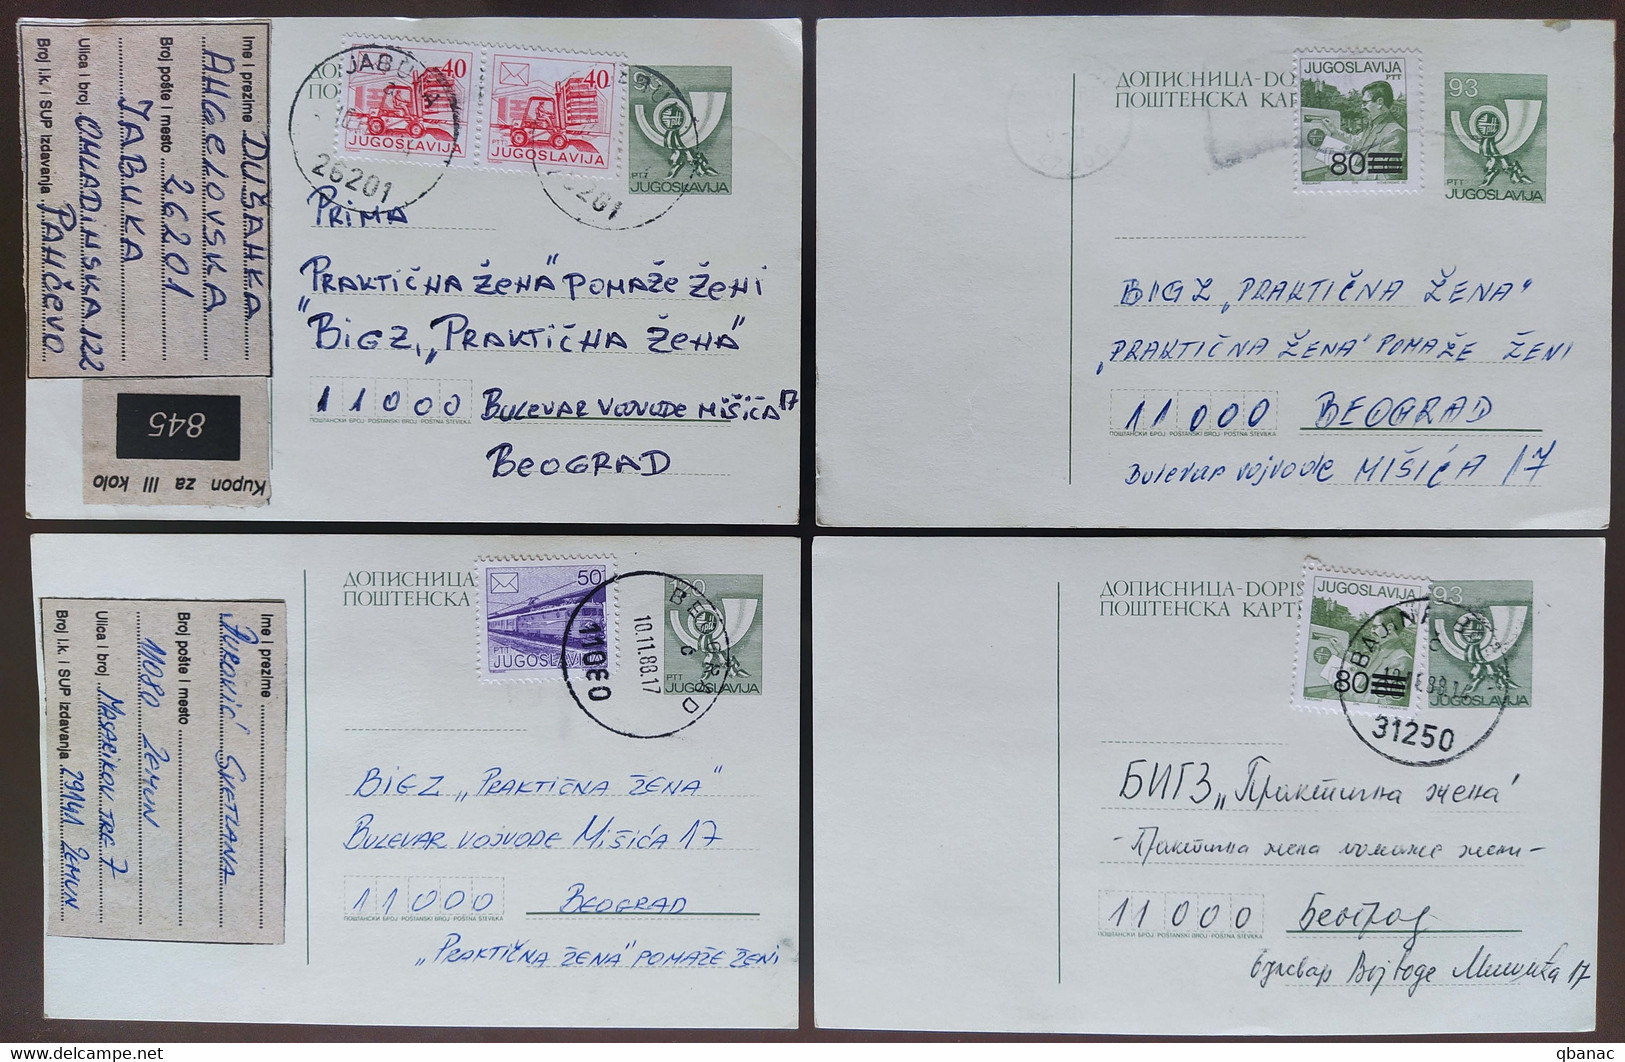 Ime i prezime DUŠAHKA
AHGELOVSKA
Broj pošte i mesto 26201
JABUKA
Ulica i broj OMLADIHSKA 122
Broj l.k. i SUP izdavanja PAHČEVO
845
Kupon za III kolo
40
40
JUGOSLAVIJA
JUGOSLAVIJA
PTT
JUGOSLAVIJA
JABUKA
26201
PRIMA
PRAKTIČHA ŽEHA" POMAŽE ŽEHI
"BIGZ, „PRAKTIČHA ŽEHA"
11000 BULEVAR VOJVODE MIŠIĆA 17
ПОШТАНСКИ БРОЈ POŠTANSKI BROJ POŠTNA ŠTEVILKA
BEOGRAD
ДОПИСНИЦА-DO
ПОШТЕНСКА КАР
JUGOSLAVIJA
PTT
80
93
PTT
JUGOSLAVIJA
BIGZ „PRAKTIČHA ŽEHA"
„PRAKTIČHA ŽEHA" POMAŽE ŽEHI
11000 BEOGRAD
ПОШТАНСКИ БРОЈ POŠTANSKI BROJ POŠTNA ŠTEVILKA
Bulevar vojvode MIŠIĆA 17
Ime i prezime
Svetlana
Broj pošte i mesto
11080 Zemun
Ulica i broj Masarikov trg 7
Broj l.k. i SUP izdavanja 29141 Zemun
ДОПИСНИЦА
ПОШТЕНСКА
50
PTT
JUGOSLAVIJA
PTT
JUGOSLAVIJA
BEOGRAD
10.11.88.17
c
11080
BIGZ „PRAKTIČNA ŽENA"
BULEVAR VOJVODE MIŠIĆA 17
11000 BEOGRAD
ПОШТАНСКИ БРОЈ POŠTANSKI BROJ POŠTNA ŠTEVILKA
„PRAKTIČNA ŽENA" POMAŽE ŽENI
ДОПИСНИЦА-DOPIS
ПОШТЕНСКА КАРТ
JUGOSLAVIJA
80
93
JUGOSLAVIJA
31250
БИГЗ „Практична жена"
- Практична жена помаже жени -
11000 Београд
ПОШТАНСКИ БРОЈ POŠTANSKI BROJ POŠTNA ŠTEVILKA
Булевар Војводе Мишића 17
delcampe.net
qbanac